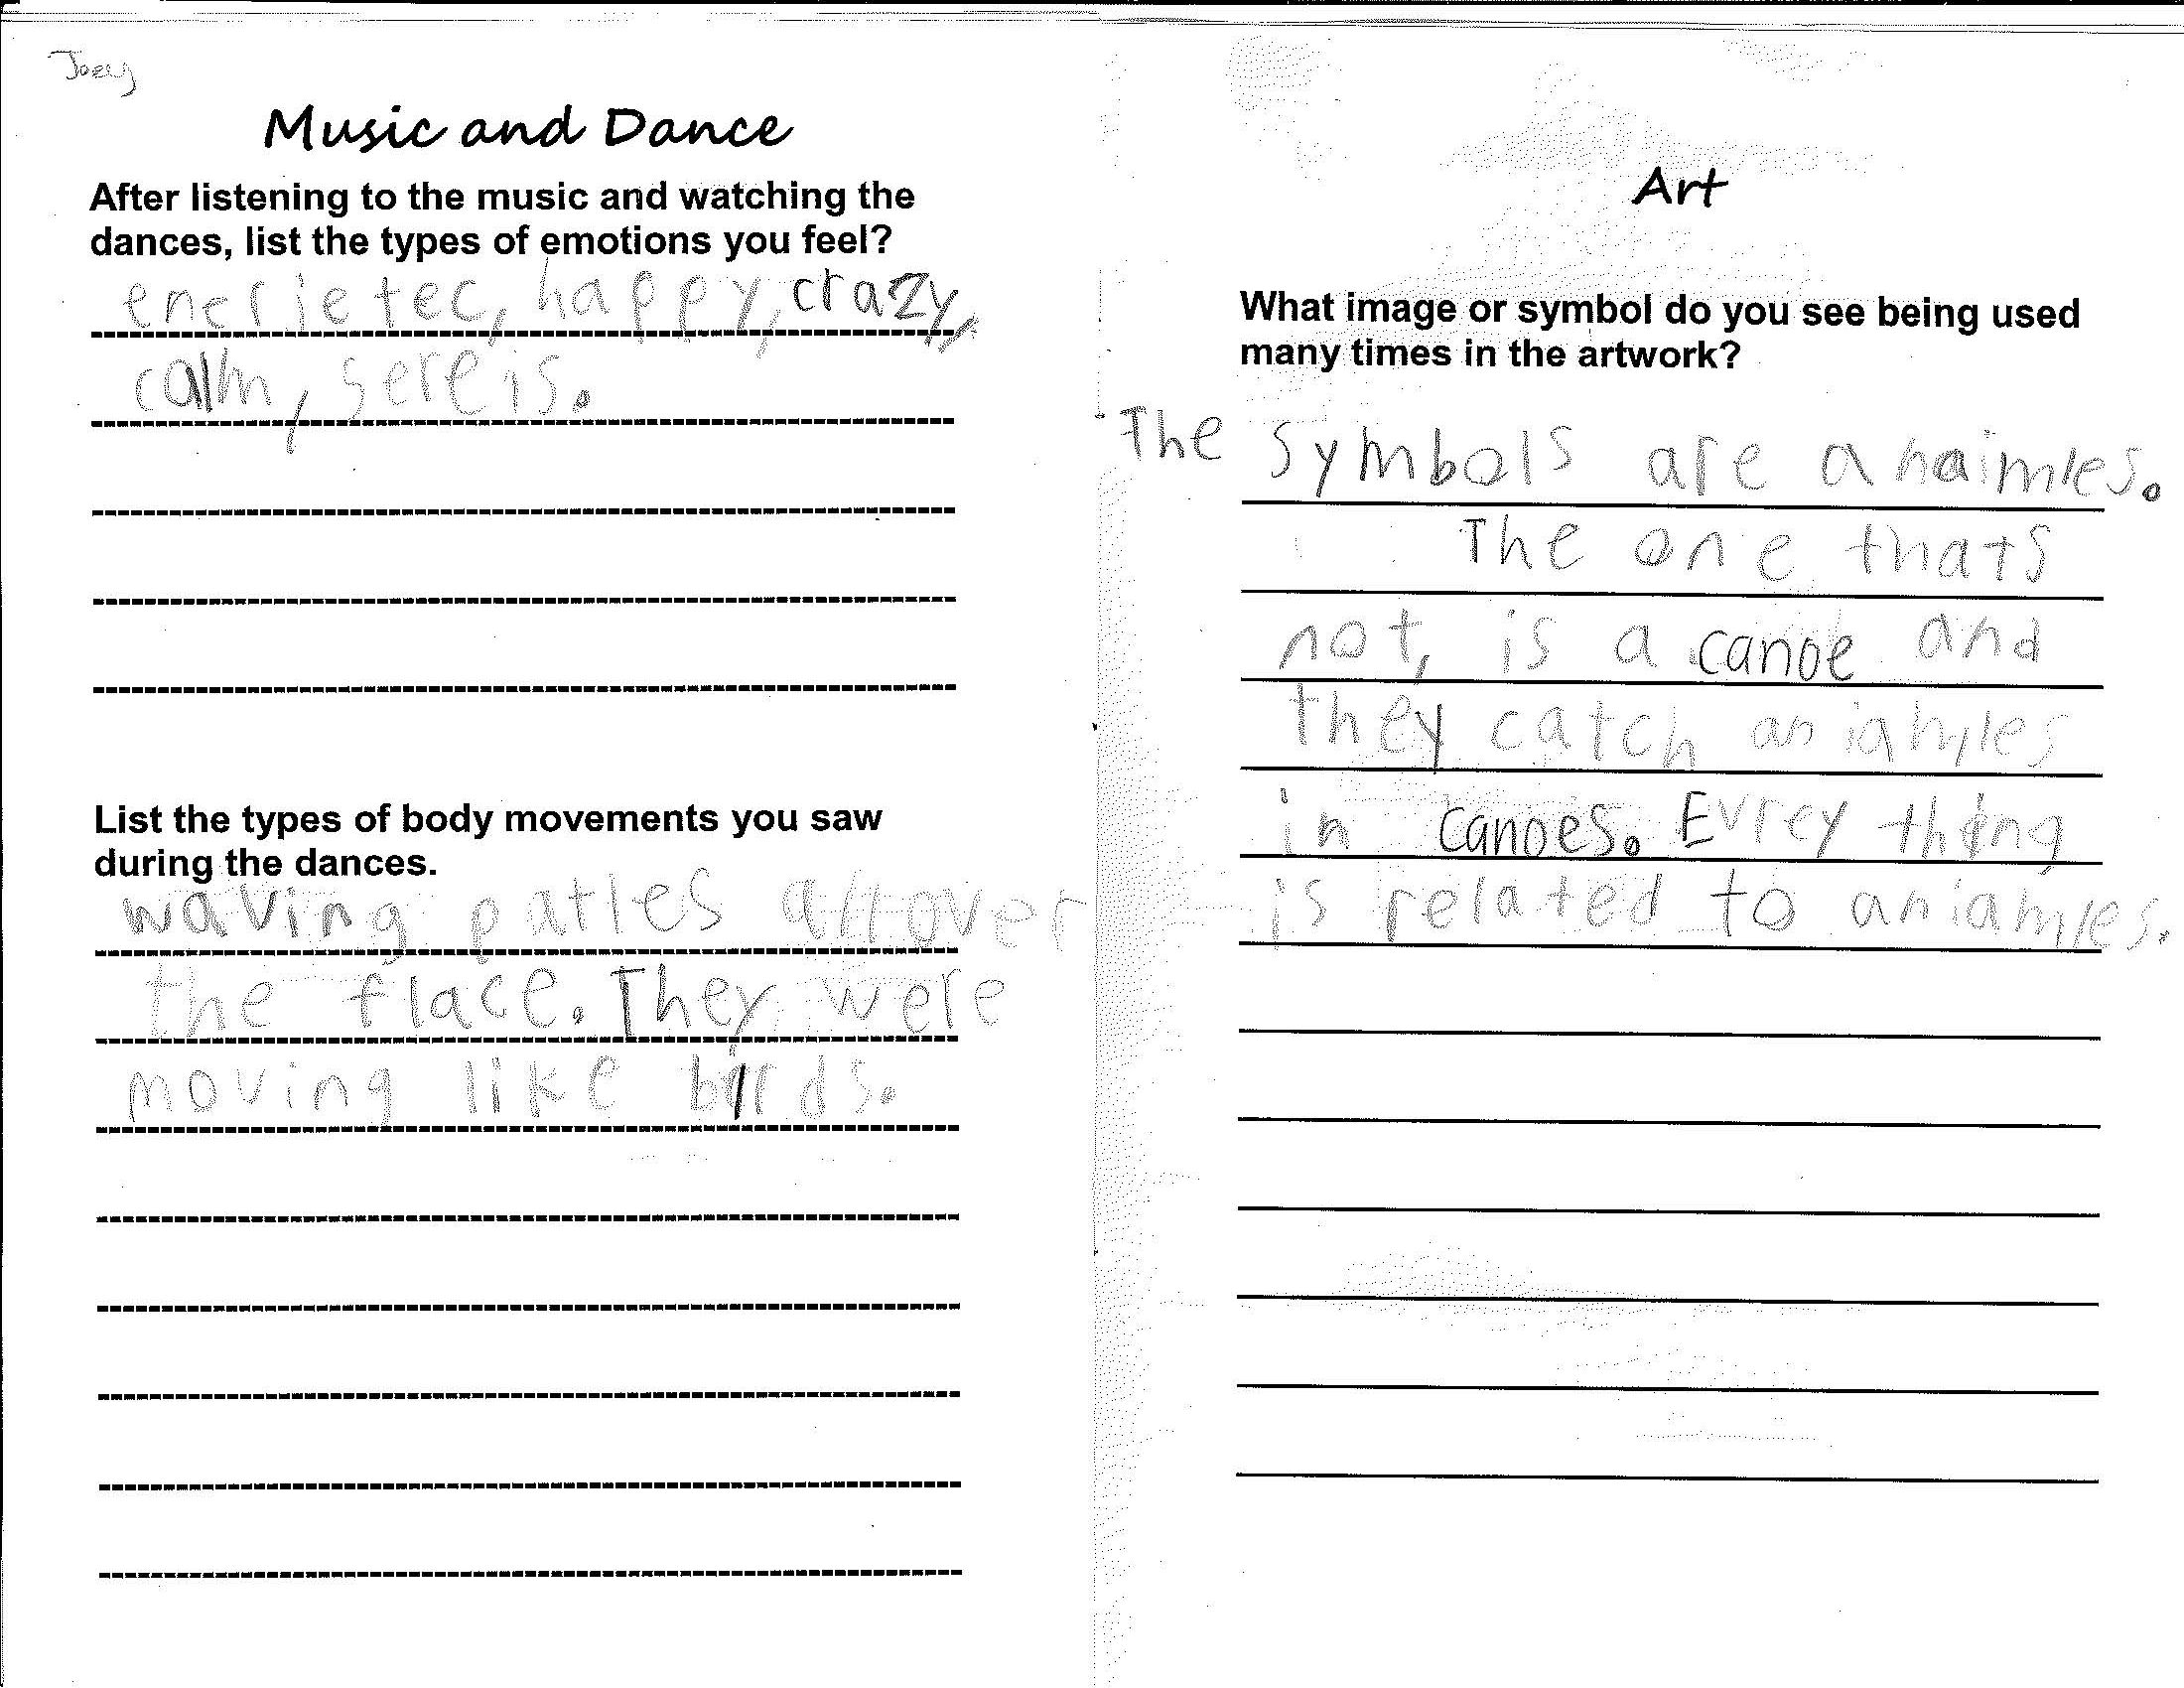 Joey
Music and Dance
After listening to the music and watching the
dances, list the types of emotions you feel?
enerjetec, happy, crazy,
calm, sereis.
List the types of body movements you saw
during the dances.
waving patles all over
the flace. They were
moving like birds.
Art
What image or symbol do you see being used
many times in the artwork?
The symbols are anaimles.
The one thats
not, is a canoe and
they catch aniamles
in canoes. Evrey thing
is related to aniamles.